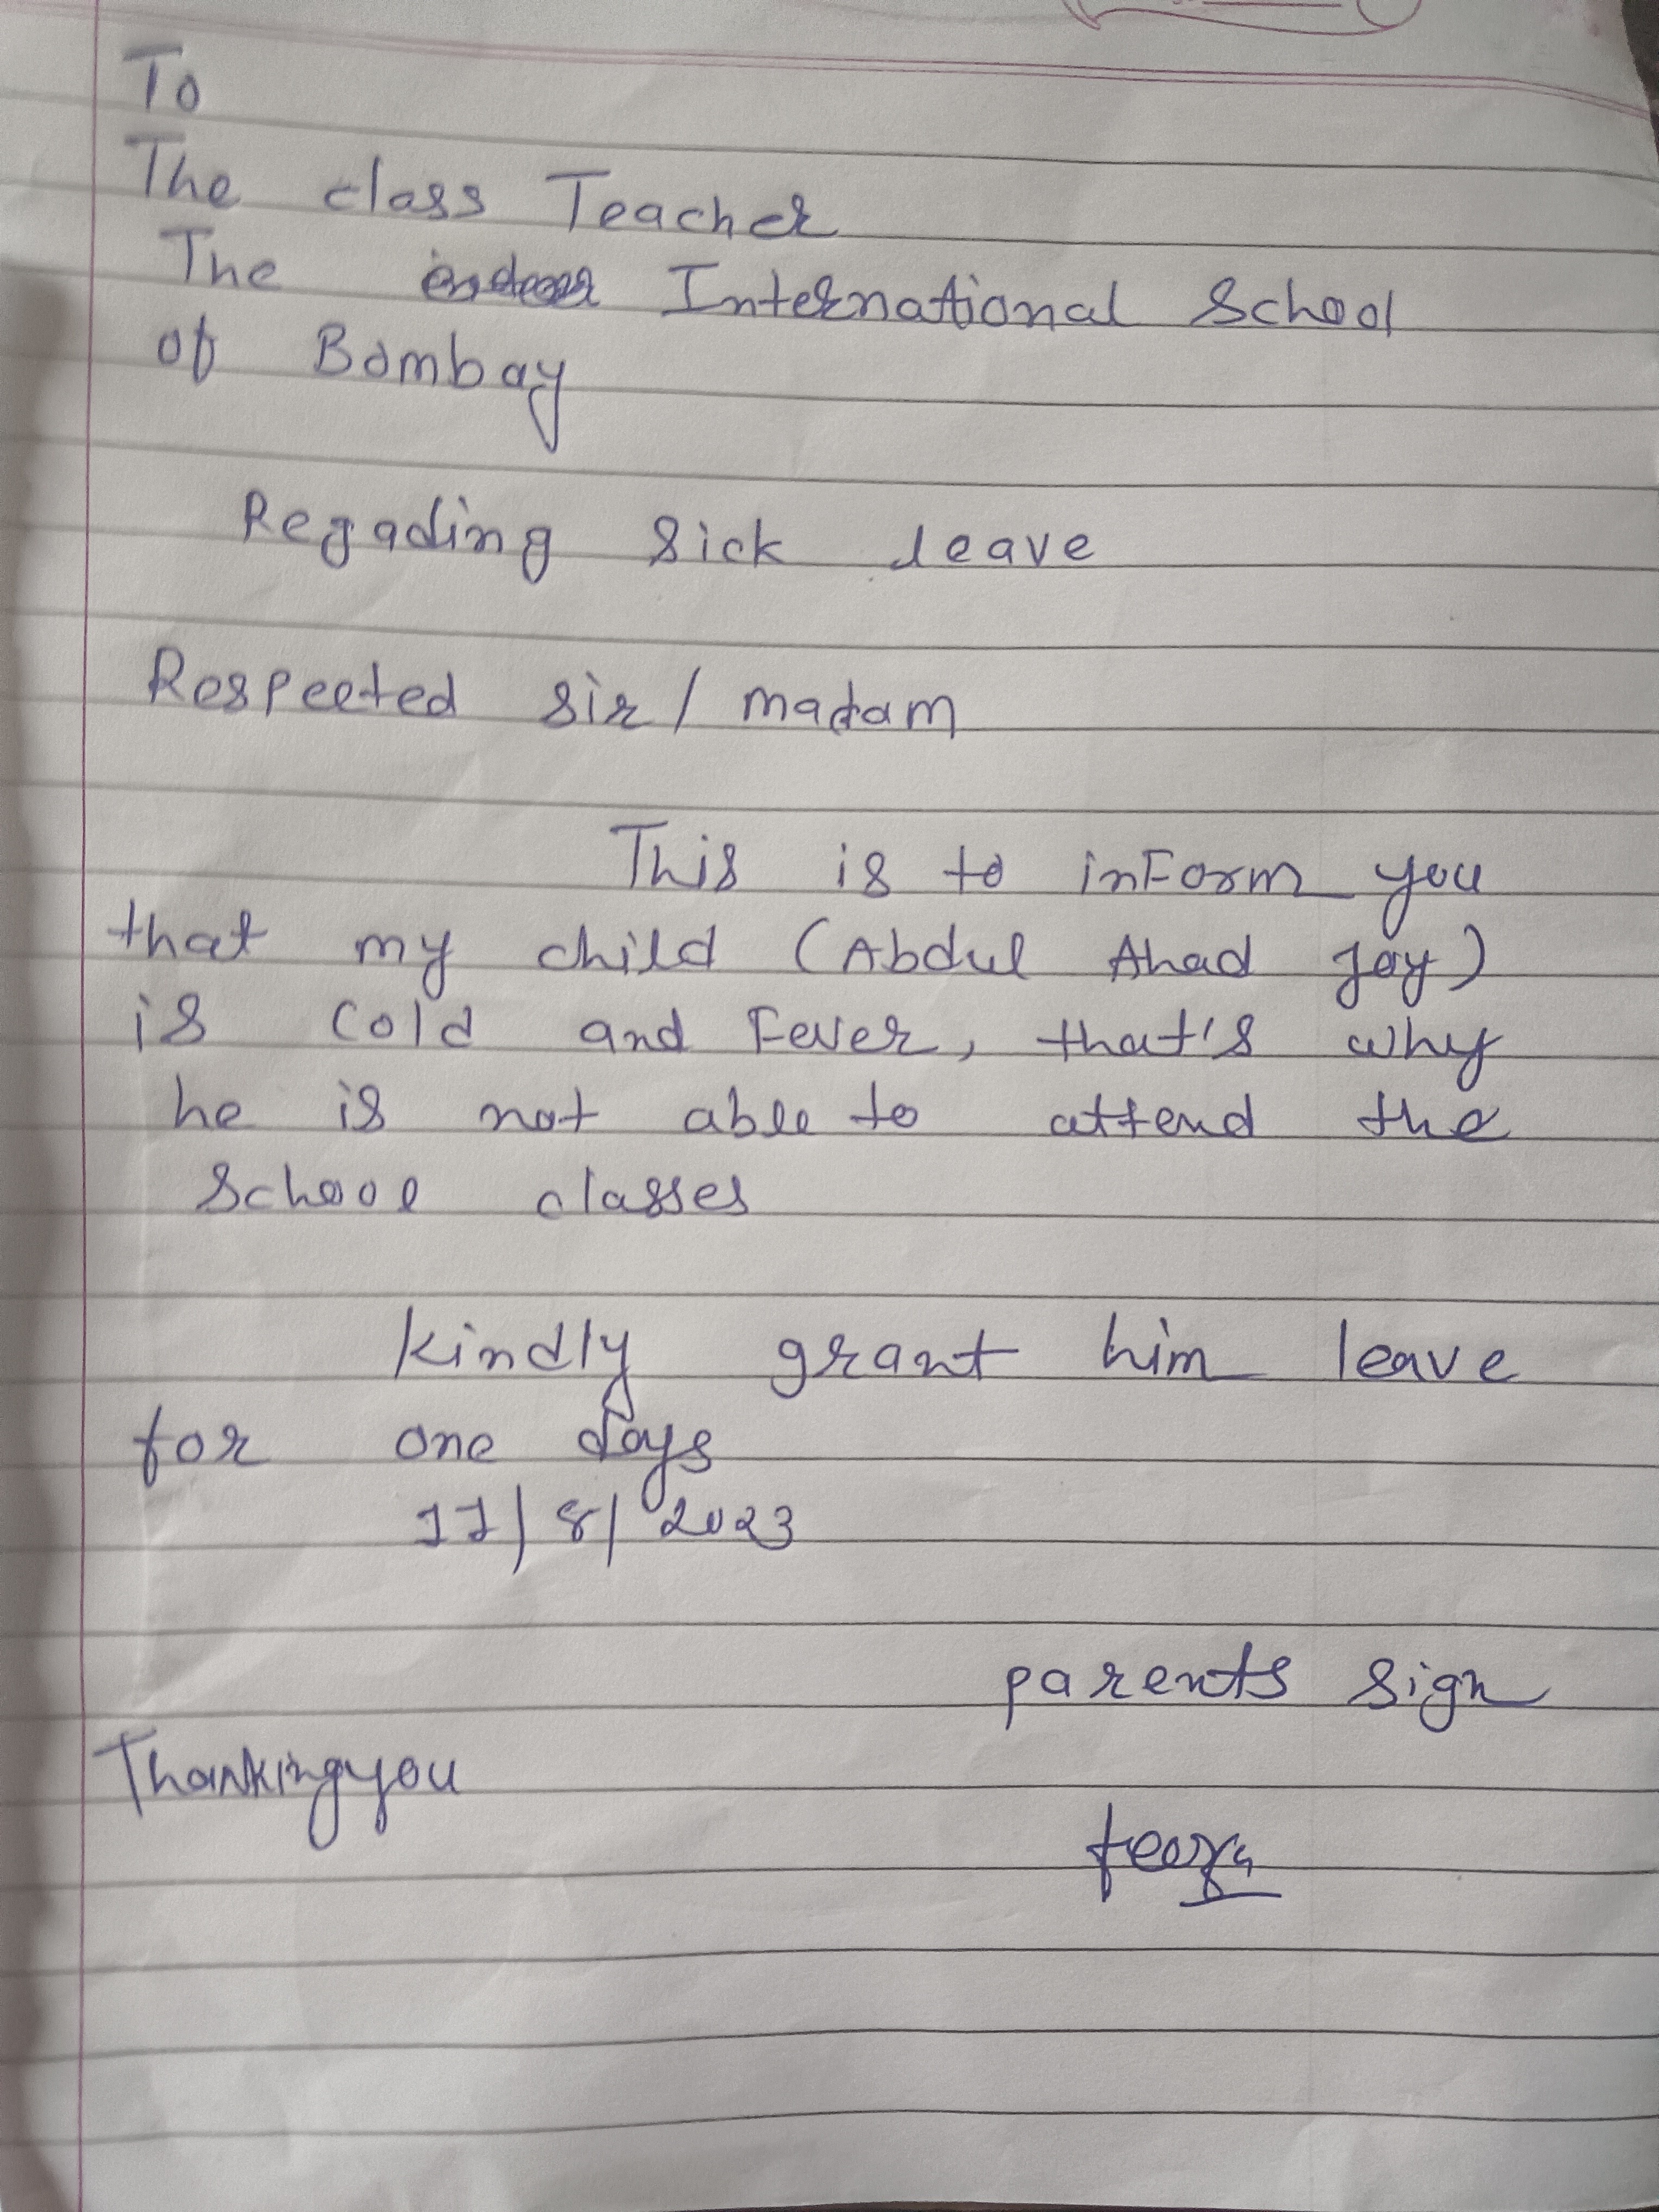 To
The class Teacher
The International School
of Bombay
Regading Sick leave
Respected sir / madam
This is to inForm you
that my child (Abdul Ahad Joy)
is cold and Fever, that's why
he is not able to attend the
School classes
kindly grant him leave
for one days
11/8/2023
parents sign
Thankingyou